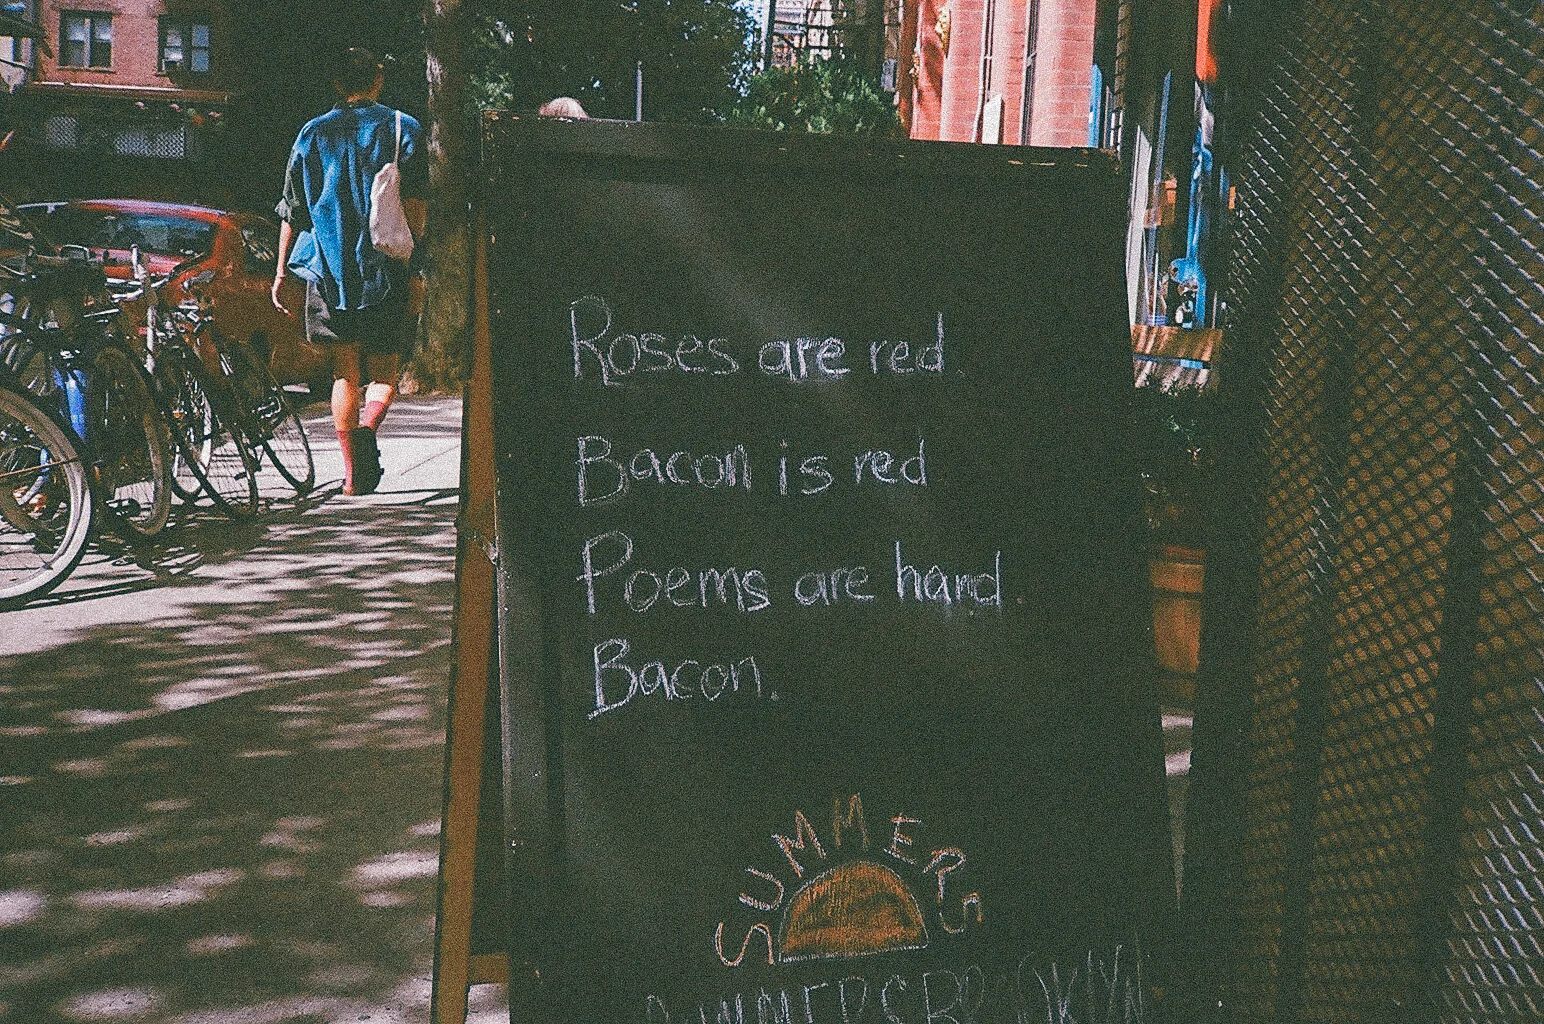 Roses are red
Bacon is red
Poems are hard
Bacon.
SUMMERS